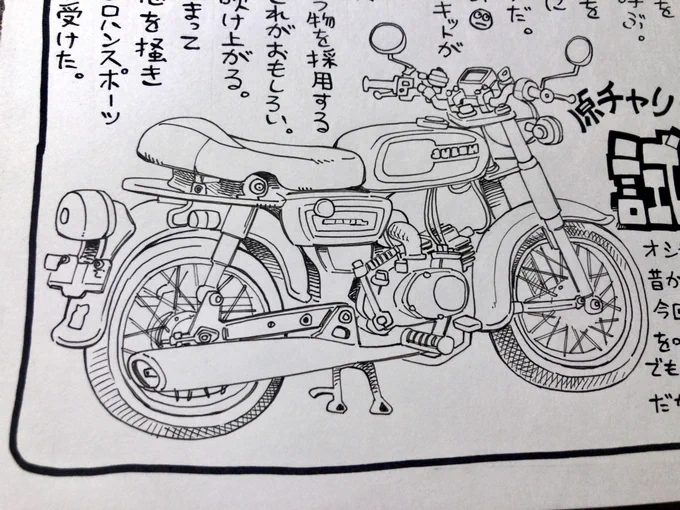 を
呼ぶ。
を
に
だ。
キットが
う物を採用する
これがおもしろい。
吹け上がる。
まって
を掻き
ロハンスポーツ
受けた。
原チャリ
オシ
昔か
今回
を
でも
だか